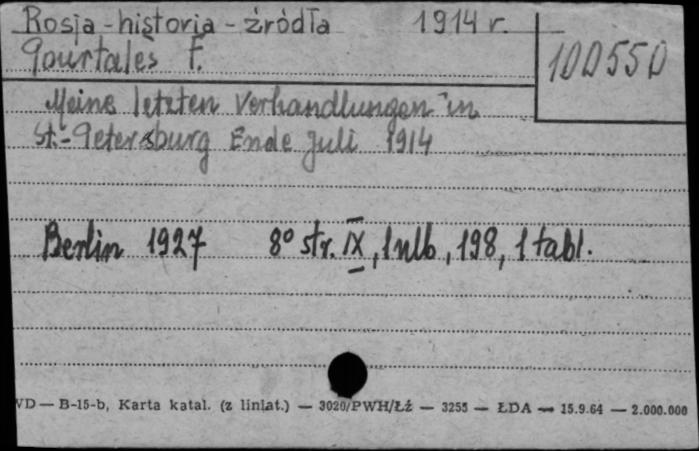 Rosja - historia - źródła 1914 r.
Pourtalès F.
100550
Meine letzten Verhandlungen in
St.-Petersburg Ende Juli 1914
Berlin 1927 8° str. IX, 1 nlb, 198, 1 tabl.
VD — B-15-b, Karta katal. (z liniat.) — 3020/PWH/Łź — 3255 — ŁDA — 15.9.64 — 2.000.000